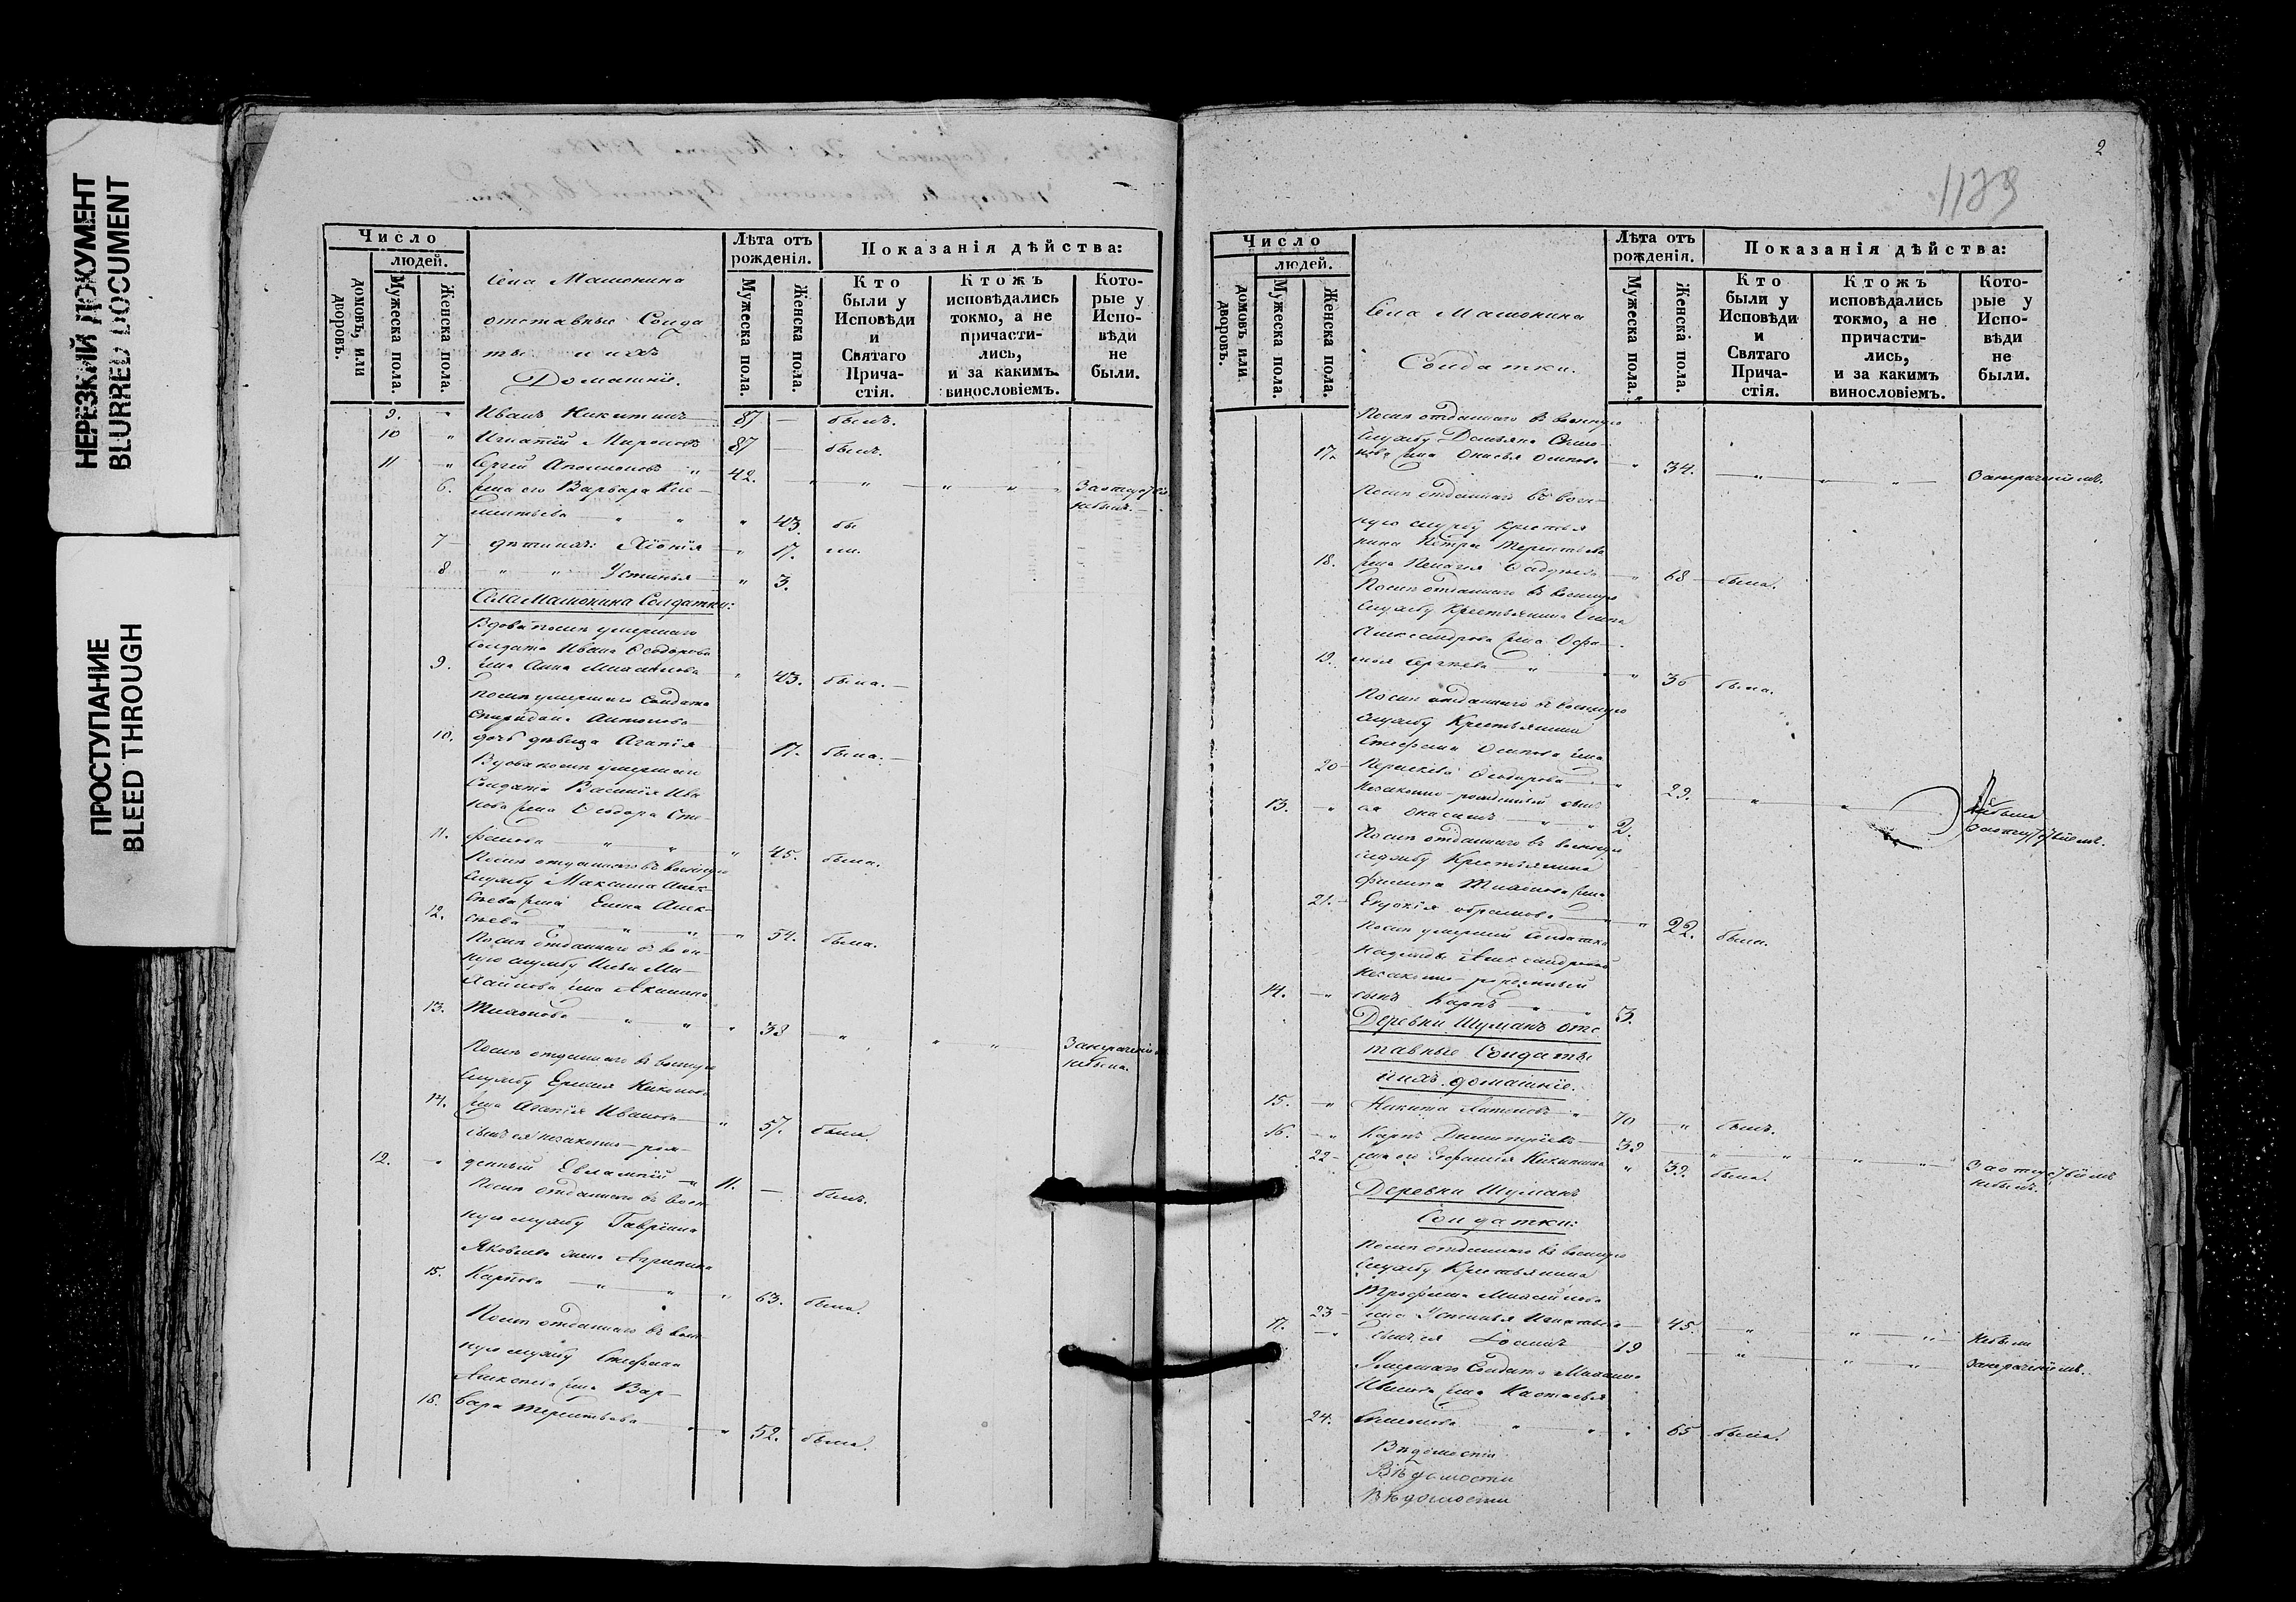 НЕРЕЗКИЙ ДОКУМЕНТ
BLURRED DOCUMENT
ПРОСТУПАНИЕ
BLEED THROUGH
Число
людей.
домовъ, или дворовъ.
Мужеска пола.
Женска пола.
Села Машонина
отставные Солда
ты и ихъ
Домашніе.
Лѣта отъ рожденія.
Мужеска пола.
Женска пола.
Показанія дѣйства:
Кто были у Исповѣди и Святаго Прича-стія.
Ктожъ исповѣдались токмо, а не причасти-лись, и за какимъ винословіемъ.
Кото-рые у Испо-вѣди не были.
9. " Иванъ Никитинъ 87 — былъ.
10 " Игнатій Мироновъ 87 — былъ.
11 " Сергій 42. " " " " За отлуч
6. жена его Варвара Кле- небылъ.
ментьева " " " 43. бы
7 дѣти ихъ: Хіонія " 17. ли.
8 " " Устинья " 3.
Села Машонина Солдатки:
Вдова послѣ умершаго
Солдата Ивана Ѳеодорова
9. жена Анна Михайлова " 43. была.
Послѣ умершаго Солдата
Спиридона Антонова
10. дочь дѣвица Агапія 17. была.
Вдова послѣ умершаго
Солдата Василія Ива
нова жена Ѳеодора Сте-
11. фанова " " " 45. была.
Послѣ отданнаго въ военную
службу Максима Алек-
сѣева жена Елена Алек-
12. сѣева " " " " 54. была.
Послѣ отданнаго въ воен-
ную службу Ильи Ми-
хайлова жена Акилина
13. Тихонова " " " 38 " " " За нерадѣніе
небыла.
Послѣ отданнаго въ военную
службу Ермила Никонова
14. жена Агапія Иванова " 57. была.
сынъ ея незаконно-рож-
12. " денный Евлампій " 11. — былъ.
Послѣ отданнаго въ воен
ную службу Гавріила
Яковлева жена Агрипина
15. Карпова " " " 63. была.
Послѣ отданнаго въ воен
ную службу Стефана
Алексѣева жена Вар-
16. вара Терентьева " " 52. была.
2
1179
Число
людей.
домовъ или дворовъ.
Мужеска пола.
Женска пола.
Села Машонина
Солдатки.
Лѣта отъ рожденія.
Мужеска пола.
Женскія пола.
Показанія дѣйства:
Кто были у Исповѣди и Святаго Прича-стія.
Ктожъ исповѣдались токмо, а не причасти-лись, и за какимъ винословіемъ.
Кото-рые у Испо-вѣди не были.
Послѣ отданнаго въ военную
службу Демьяна Симо-
17. нова жена Онисья Осипова " 34. " " " За нерадѣніемъ.
Послѣ отданнаго въ воен-
ную службу Крестья
нина Петра Терентьева
18. жена Пелагея " 68 была.
Послѣ отданнаго въ военную
службу Крестьянина Осипа
Александрова жена Офи-
19. мья Сергѣева " " 36 была.
Послѣ отданнаго въ военную
службу Крестьянина
Стефана Осипова жена
20 Ѳеодорова " 29. " "
Незаконно-рожденный сынъ Не была
13. " ея " " 2. за отлучкою.
Послѣ отданнаго въ военную
службу Крестьянина
Филипа Тихонова жена
21. Евдокія " 22. была.
Послѣ умершей Солдатки
Надежды Александровой
незаконно-рожденный
14. " сынъ Карпъ " " 3.
Деревни Шуманъ отс
тавные Солдаты
и ихъ домашніе.
15. " Никита 70 " былъ.
16. " Карпъ Димитріевъ 39 " " " " За отлучкою
22 жена его Никитина " 39. была. небылъ.
Деревни Шуманъ
Солдатки:
Послѣ отданнаго въ военную
службу Крестьянина
Трофима Михайлова
23 жена Устинья Игнатьева 45. " " " Небыли
17. " сынъ ея 19 " " " за нерадѣніемъ.
Умершаго Солдата Михаила
Иванова жена Настасья
24. Симонова " " " 65 была.
Вѣдомости
Вѣдомости
Вѣдомости